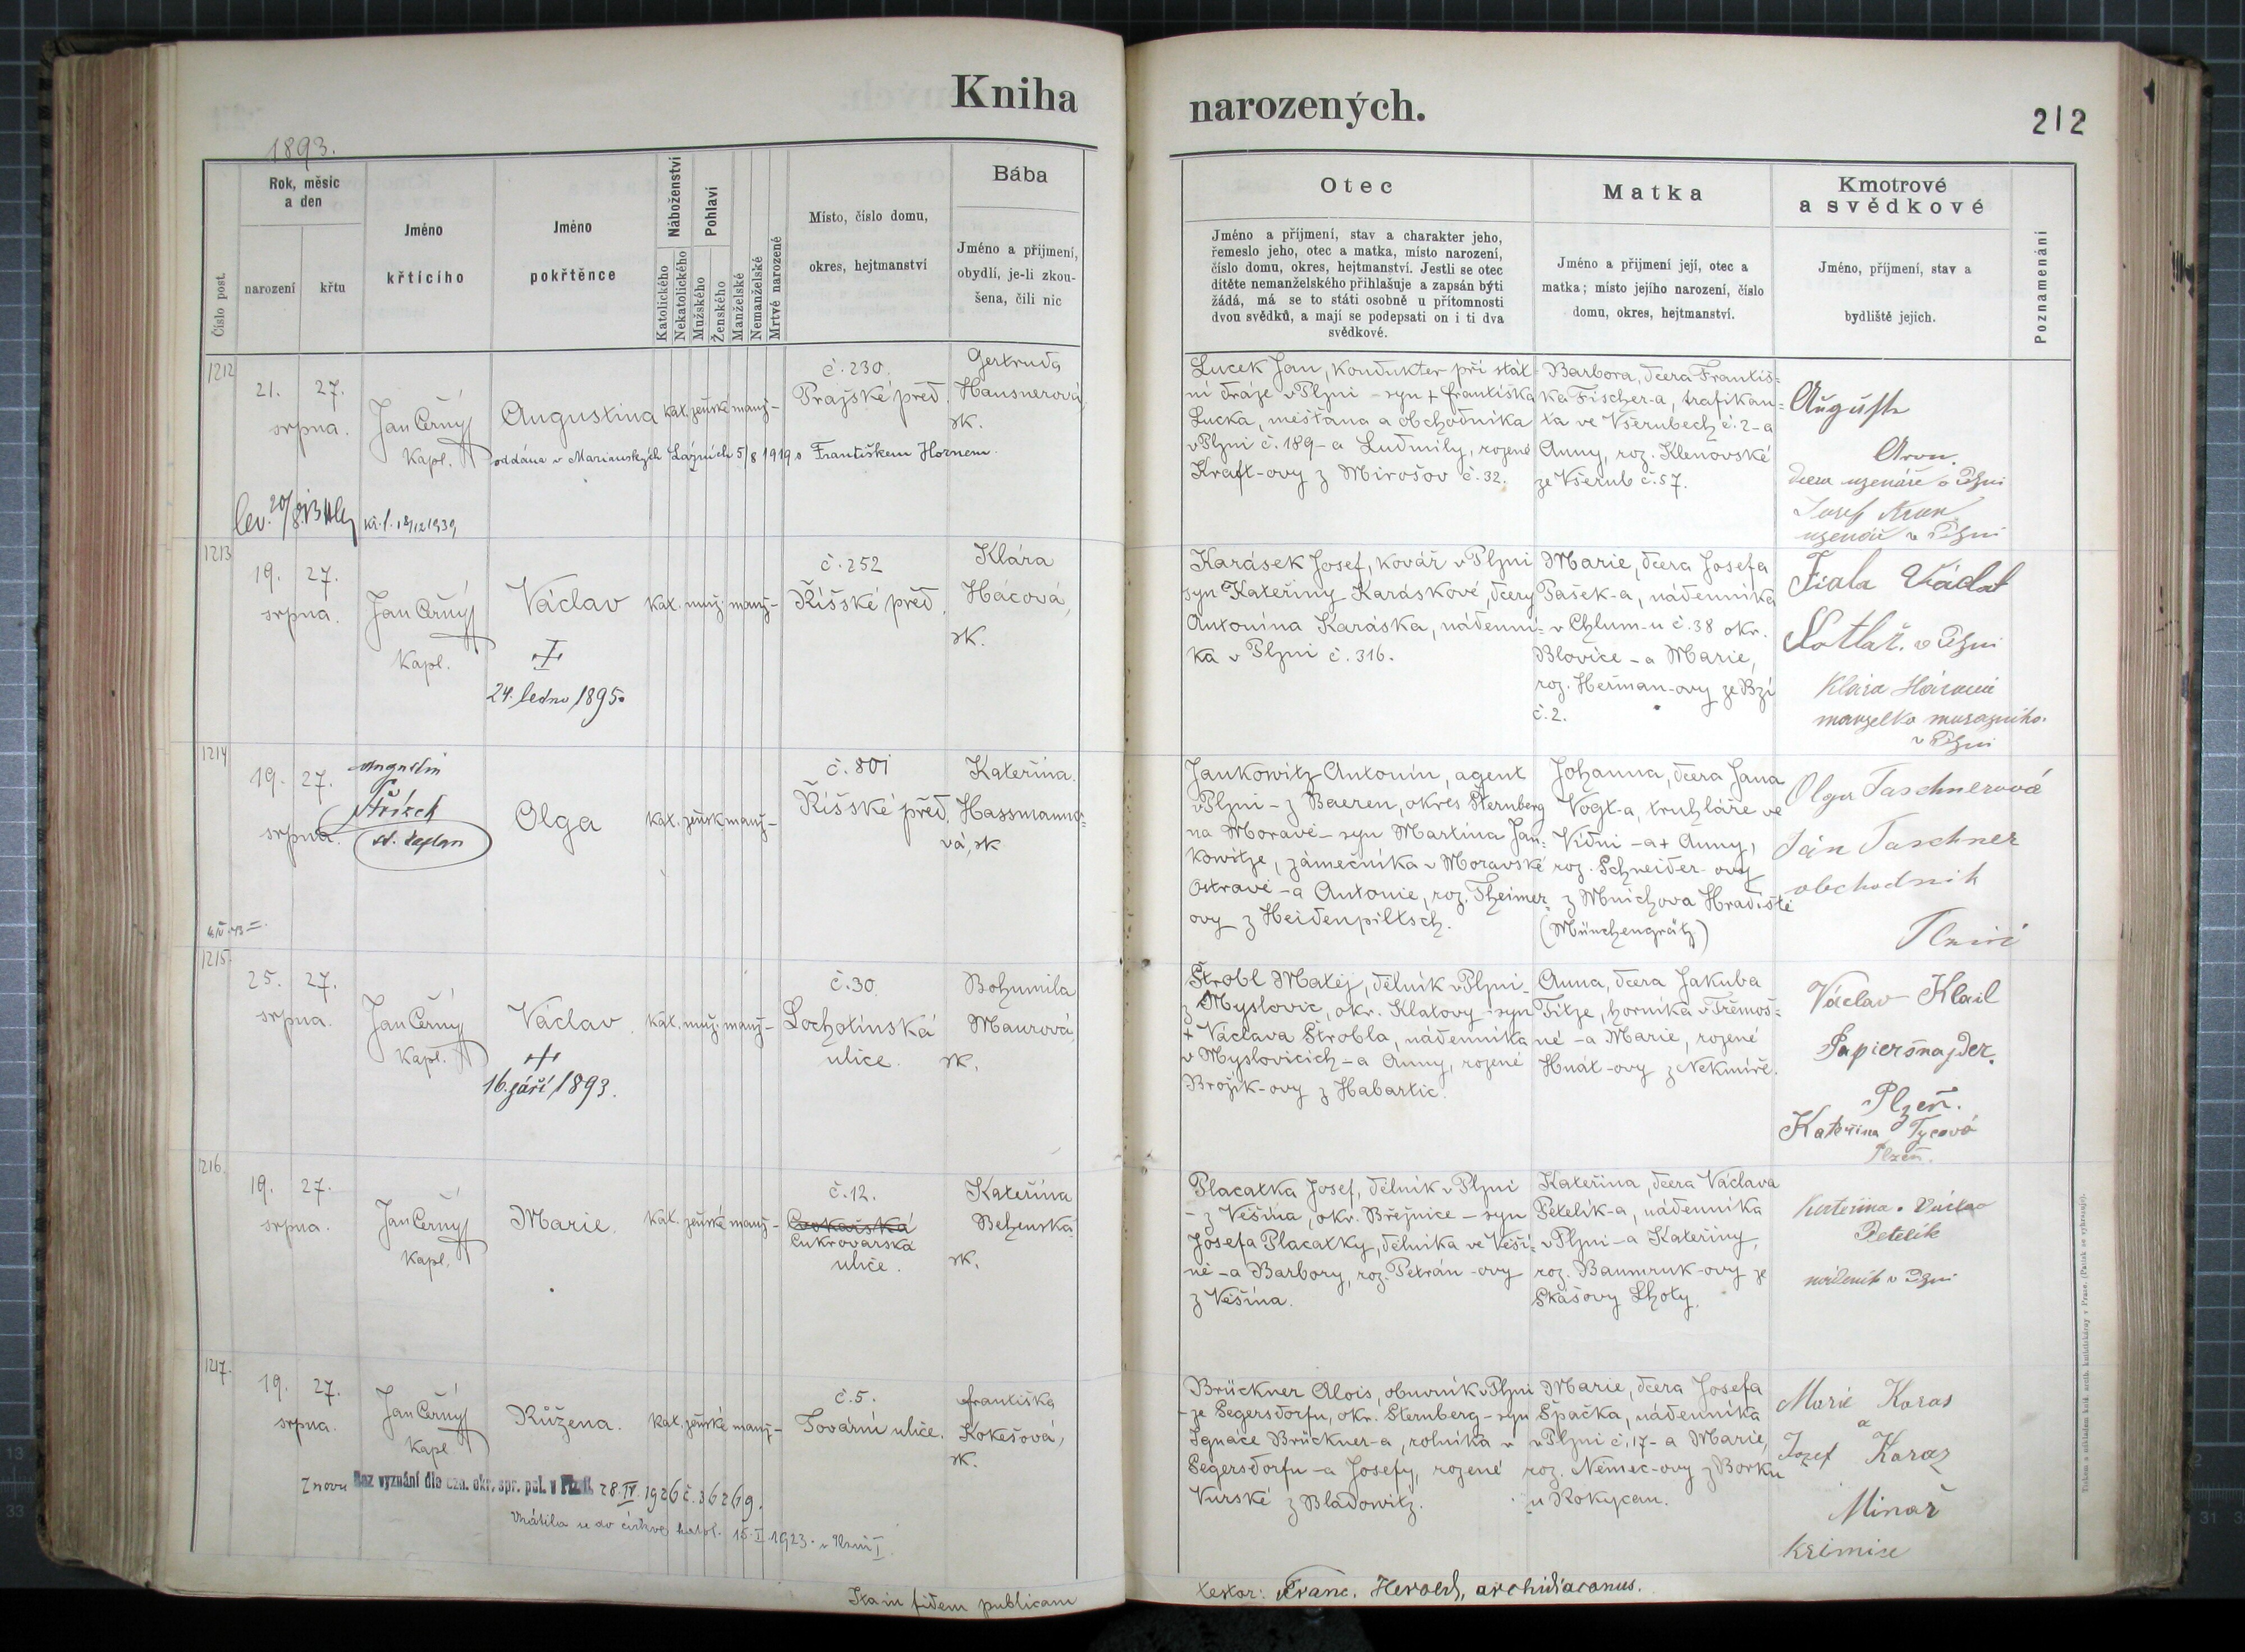 Kniha narozených.
212
1893.
Číslo post.
Rok, měsíc
a den
narození
křtu
Jméno
křtícího
Jméno
pokřtěnce
Náboženství
Katolického
Nekatolického
Pohlaví
Mužského
Ženského
Manželské
Nemanželské
Mrtvě narozené
Místo, číslo domu,
okres, hejtmanství
Bába
Jméno a příjmení,
obydlí, je-li zkou-
šena, čili nic
Otec
Jméno a příjmení, stav a charakter jeho,
řemeslo jeho, otec a matka, místo narození,
číslo domu, okres, hejtmanství. Jestli se otec
dítěte nemanželského přihlašuje a zapsán býti
žádá, má se to státi osobně u přítomnosti
dvou svědků, a mají se podepsati on i ti dva
svědkové.
Matka
Jméno a příjmení její, otec a
matka; místo jejího narození, číslo
domu, okres, hejtmanství.
Kmotrové
a svědkové
Jméno, příjmení, stav a
bydliště jejich.
Poznamenání
1212
21. 27.
srpna.
Jan Černý
kapl.
Augustina
kat. ženské manž-
č. 230.
Pražské před.
Gertruda
Hausnerová
zk.
oddána v Mariánských Lázních 5/8 1919 s Františkem Hornem.
Lucek Jan, kondukter při stát-
ní dráze v Plzni - syn + Františka
Lucka, měšťana a obchodníka
v Plzni č. 189 - a Ludmily, rozené
Kraft-ovy z Mirošov č. 32.
Barbora, dcera Františ=
ka Fischer-a, trafikan=
ta ve Všerubech č. 2 - a
Anny, roz. Klenovské
ze Všerub č. 57.
dcera uzenáře v Plzni
Josef
uzenář v Plzni
1213
19. 27.
srpna.
Jan Černý
kapl.
Václav
+
24. ledna 1895.
kat. muž. manž-
č. 252
Říšské před.
Klára
Hácová,
zk.
Karásek Josef, kovář v Plzni
syn Kateřiny Karáskové, dcery
Antonína Karáska, nádenní=
ka v Plzni č. 316.
Marie, dcera Josefa
Pašek-a, nádenníka
v Chlum-u č. 38 okr.
Blovice - a Marie,
roz. Heřman-ovy ze Bzí
č. 2.
Fiala Václav
Kotlář. v Plzni
Klára Hácová
manželka
v Plzni
1214
19. 27.
srpna.
Augustin
st. kaplan
Olga
kat. žensk. manž-
č. 801
Říšské před.
Kateřina
Hassmanno=
vá, zk
Jankowitz Antonín, agent
v Plzni - z Baeren, okres Sternberg
na Moravě - syn Martina Jan=
kowitze, zámečníka v Moravské
Ostravě - a Antonie, roz. Theimer=
ovy z Heidenpiltsch.
Johanna, dcera Jana
Vogt-a, truhláře ve
Vídni - a + Anny,
roz. Schneider-ovy
z Mnichova Hradiště
(Münchengrätz)
Olga Taschnerová
Ján Taschner
obchodník
1215.
25. 27.
srpna.
Jan Černý
kapl.
Václav.
+
16. září 1893.
kat. muž. manž-
č. 30
Lochotínská
ulice.
Bohumila
Maurová,
zk.
Štrobl Matěj, dělník v Plzni -
z Myslovic, okr. Klatovy - syn
+ Václava Štrobla, nádenníka
v Myslovicích - a Anny, rozené
Brožik-ovy z Habartic.
Anna, dcera Jakuba
Titze, horníka v Třemoš=
né - a Marie, rozené
Hnát-ovy z Nekmíře.
Václav Klail
Papieršnajder.
Plzeň.
Kateřina Tycová
Plzeň.
1216.
19. 27.
srpna.
Jan Černý
kapl.
Marie.
kat. ženské manž-
č. 12.
Cukrovarská
ulice.
Kateřina
Behenska
zk.
Placatka Josef, dělník v Plzni
- z Věšína, okr. Březnice - syn
Josefa Placatky, dělníka ve Věší=
ně - a Barbory, roz. Petrán-ovy
z Věšína.
Kateřina, dcera Václava
Petelík-a, nádenníka
v Plzni - a Kateřiny,
roz. Baumruk-ovy ze
Skašovy Lhoty.
Kateřina. Václav
Petelík
nádeník v Plzni
1217.
19. 27.
srpna.
Jan Černý
kapl.
Růžena.
kat. ženské manž-
č. 5.
Tovární ulice.
Františka
Kokešová,
zk.
Znovu Bez vyznání dle ozn. okr. spr. pol. v Plzni 28. IV. 1926 č. 36269.
Vrátila se do církve katol. 15. I. 1923. v Plzni I.
Brückner Alois, obuvník v Plzni
- ze Segersdorfu, okr. Sternberg - syn
Ignace Brückner-a, rolníka v
Segersdorfu - a Josefy, rozené
Vurské z Bladowitz.
Marie, dcera Josefa
Špačka, nádenníka
v Plzni č. 17 - a Marie,
roz. Němec-ovy z Borku
u Rokycan.
Marie Karas
a
Jozef Karas
Minař
Křimice
Ita in fidem publicam
testor: Franc. Herold, archidiaconus.